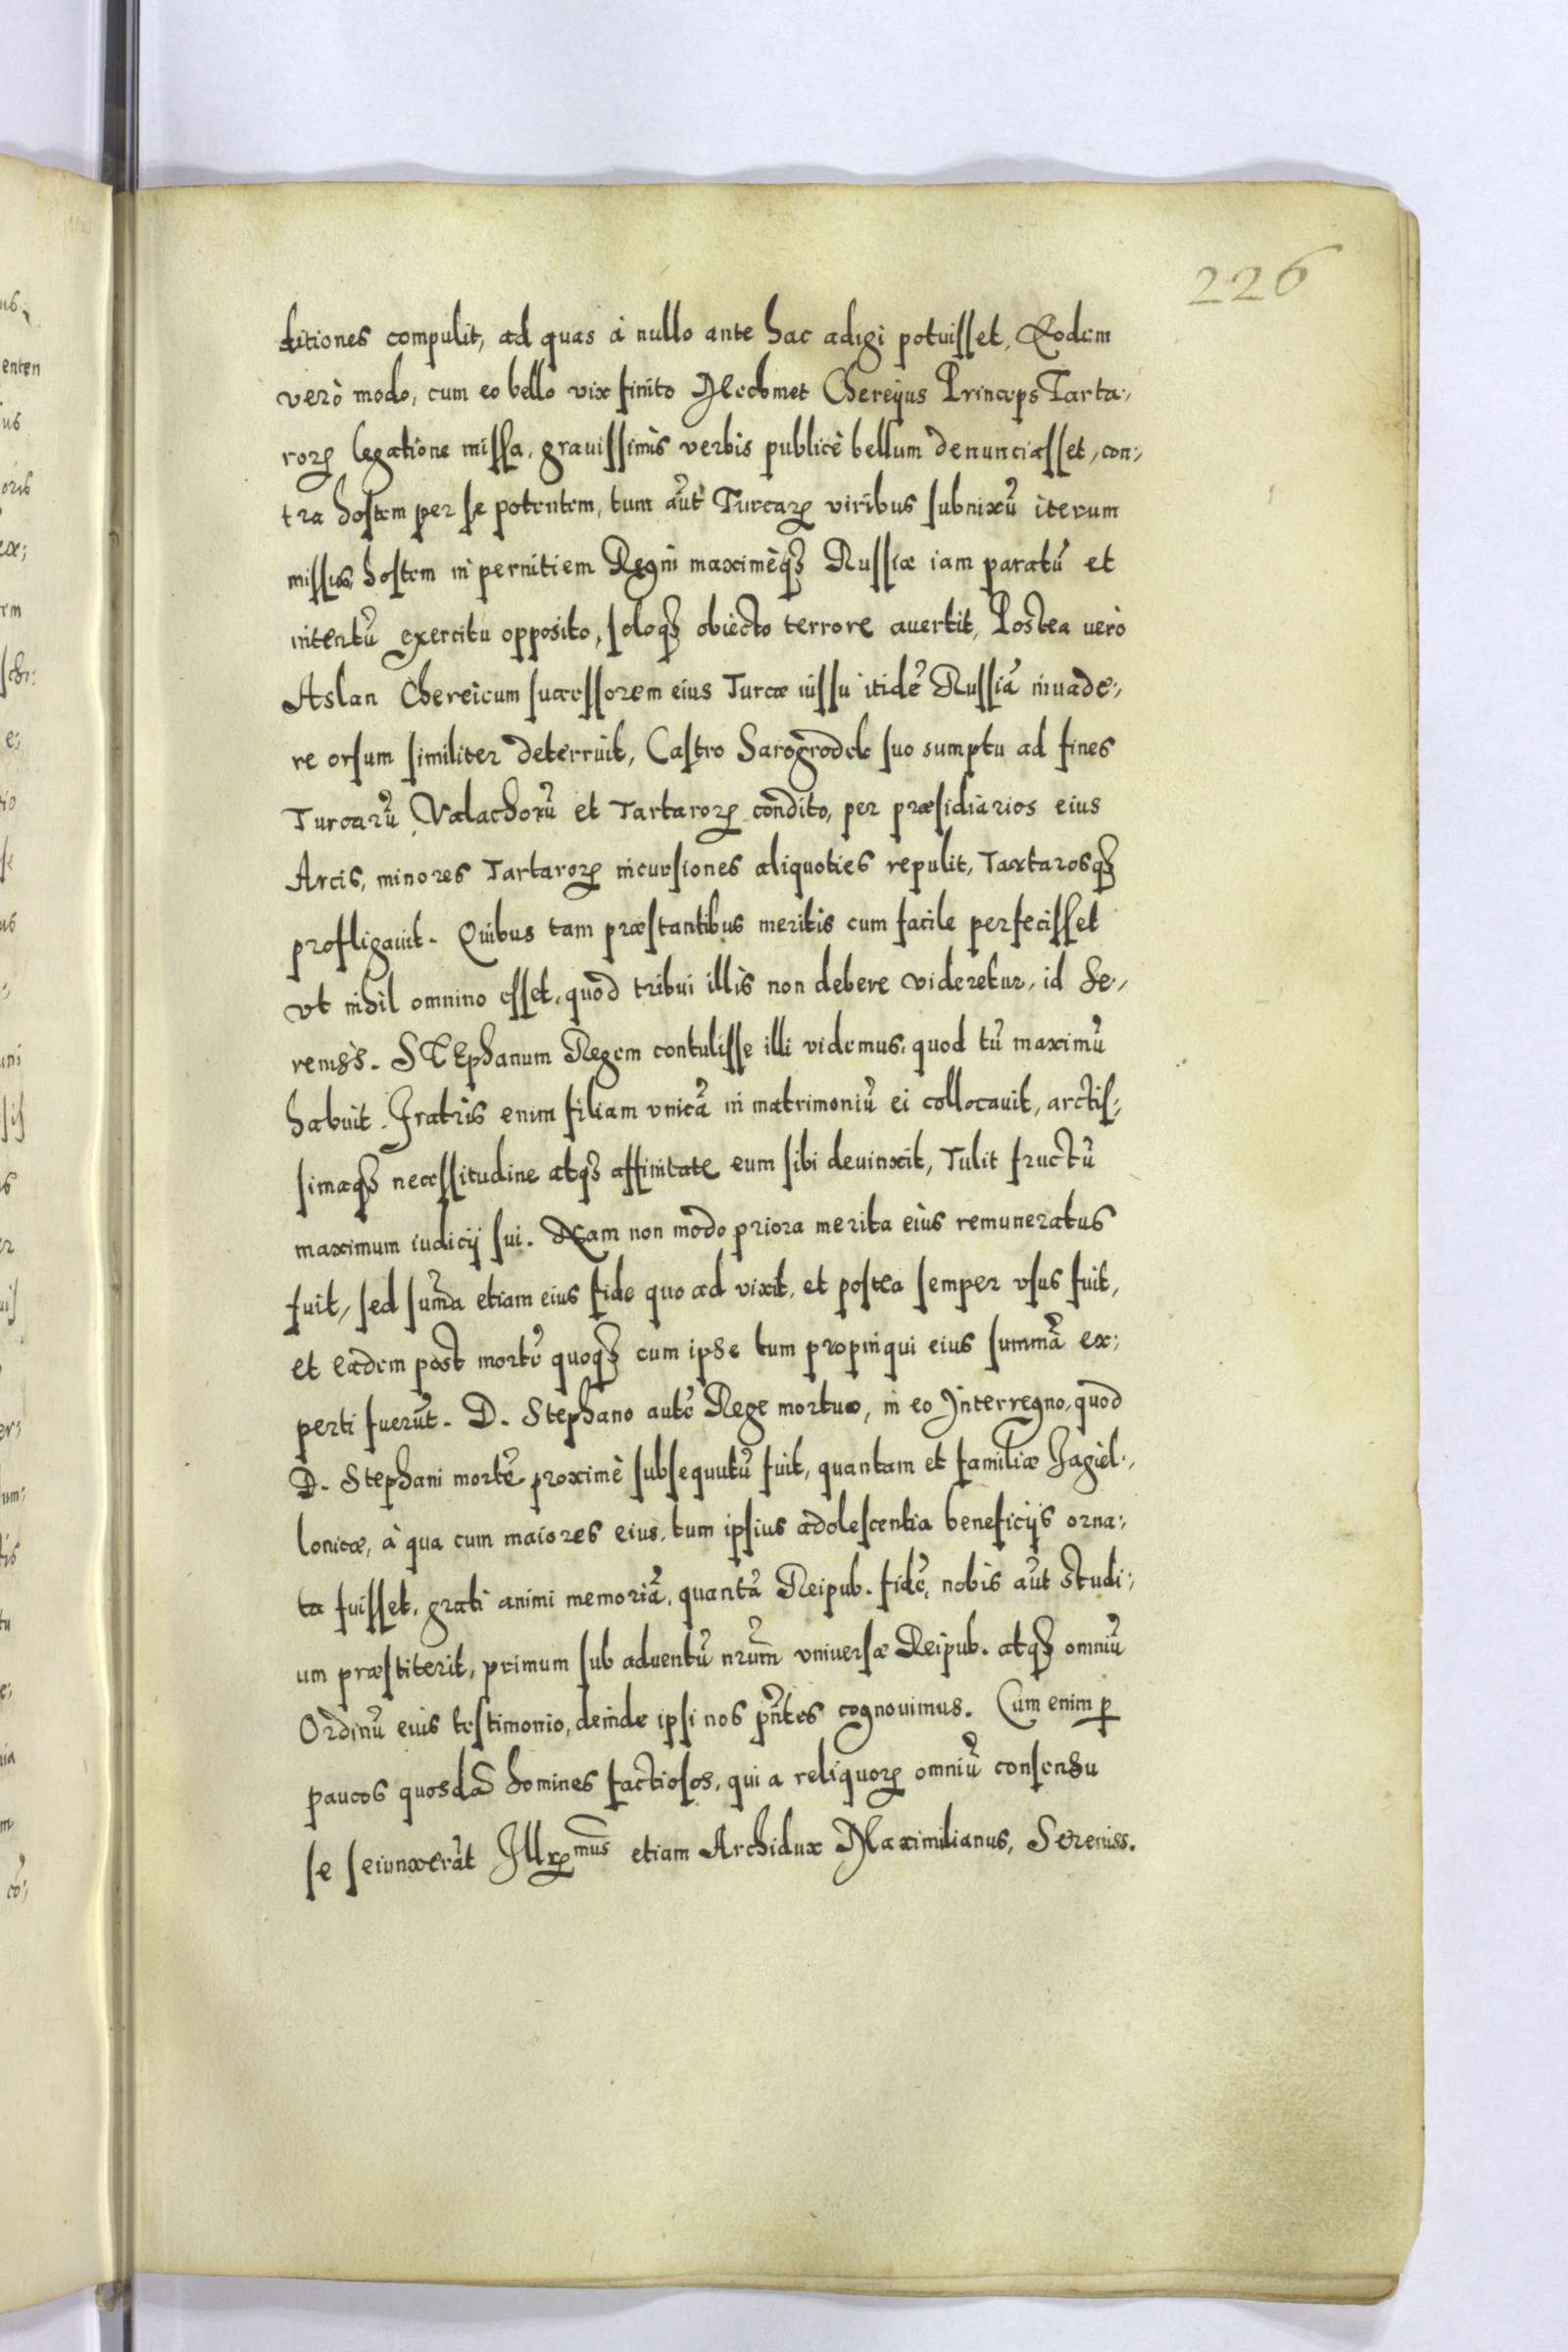 226
ditiones compulit, ad quas à nullo ante hac adigi potuisset, Eodem
verò modo, cum eo bello vix finito Mechmet Chereyus Princeps Tarta:,
rorꝝ legatione missa, grauissimis verbis publicè bellum denunciasset, con:,
tra hostem per se potentem, tum aũt Turcarꝝ viribus subnixũ iterum
missus hostem in pernitiem Regni maximèqꝫ Russiæ iam paratũ et
intentũ exercitu opposito, soloqꝫ obiecto terrore auertit, Postea uerò
Aslan Chereicum successorem eius Turcæ iussu itidẽ Russiã inuade:,
re orsum similiter deterruit, Castro Sarogrodek suo sumptu ad fines
Turcarũ, Valachorũ et Tartarorꝝ condito, per præsidiarios eius
Arcis, minores Tartarorꝝ incursiones aliquoties repulit, Tartarosqꝫ
profligauit. Quibus tam præstantibus meritis cum facile perfecisset
vt nihil omnino esset, quod tribui illis non debere videretur, id Se:,
reniss. STEphanum Regem contulisse illi videmus, quod tũ maximũ
habuit. Fratris enim filiam vnicã in matrimoniũ ei collocauit, arctis:,
simaqꝫ necessitudine atqꝫ affinitate eum sibi deuinxit, Tulit fructũ
maximum iudicij sui. Nam non modo priora merita eius remuneratus
fuit, sed sum̃a etiam eius fide quo ad vixit, et postea semper vsus fuit,
et eadem post mortẽ quoqꝫ cum ipse tum propinqui eius summã ex:
perti fuerũt. D. Stephano autẽ Rege mortuo, in eo Interregno, quod
D. Stephani mortẽ proximè subsequutũ fuit, quantam et familiæ Jagiel:,
lonicæ, à qua cum maiores eius, tum ipsius adolescentia beneficijs orna:,
ta fuisset, grati animi memoriã, quantã Reipub. fidẽ, nobis aũt studi:,
um præstiterit, primum sub aduentũ nr̃um vniuersæ Reipub. atqꝫ omniũ
Ordinũ eius testimonio, deinde ipsi nos pñtes cognouimus. Cum enim ꝑ
paucos quosdã homines factiosos, qui a reliquorꝝ omniũ consensu
se seiunxerãt Illꝝmus etiam Archidux Maximilianus, Sereniss.